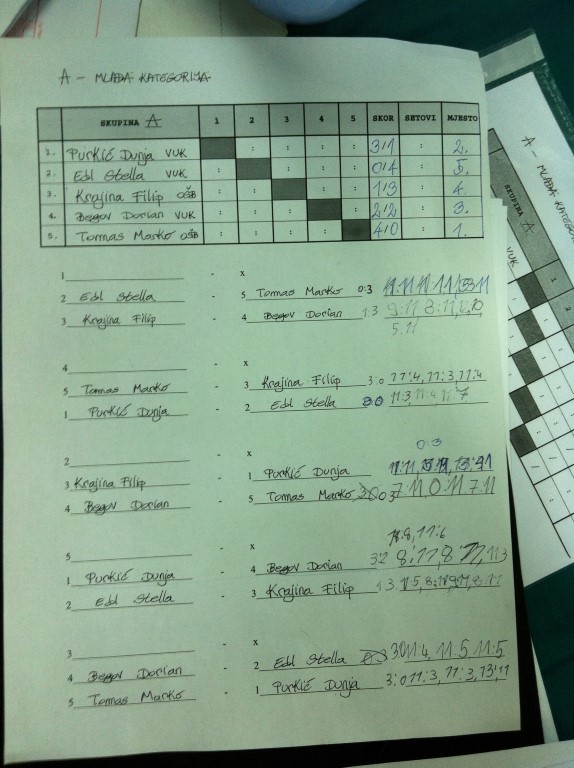 A - MLAĐA KATEGORIJA
SKUPINA A 1 2 3 4 5 SKOR SETOVI MJESTO
1. Purkić Dunja VUK : : : : 3:1 : 2.
2. Edl Stella VUK : : : : 0:4 : 5.
3. Krajina Filip OŠB : : : : 1:3 : 4.
4. Begov Dorian VUK : : : : 2:2 : 3.
5. Tomas Marko OŠB : : : : 4:0 : 1.
1 - x
2 Edl Stella - 5 Tomas Marko 0:3
3 Krajina Filip - 4 Begov Dorian 1:3 9:11 8:11
5:11
4 - x
5 Tomas Marko - 3 Krajina Filip 3:0 11:4, 11:3, 11:4
1 Purkić Dunja - 2 Edl Stella 3:0 11:3, 11:4
0:3
2 - x
3 Krajina Filip - 1 Purkić Dunja
4 Begov Dorian - 5 Tomas Marko 0:3 7:11 0:11 7:11
11:8, 11:6
5 - x
1 Purkić Dunja - 4 Begov Dorian 3:2 8:11, 8:11, 11:3
2 Edl Stella - 3 Krajina Filip 1:3
3 - x
4 Begov Dorian - 2 Edl Stella 3:0 11:4, 11:5 11:5
5 Tomas Marko - 1 Purkić Dunja 3:0 11:3, 11:3, 13:11
A - MLAĐA
SKUPINA A
VUK
1
2